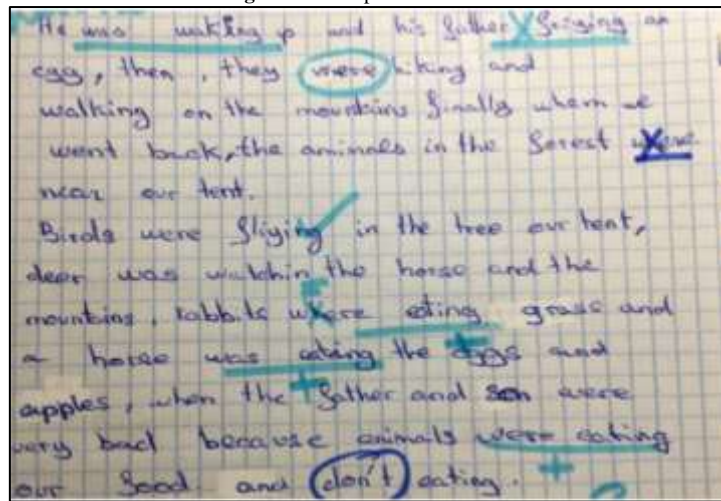 He was waking up and his father friying an
egg, then, they were hiking and
walking on the mountains finally when we
went back, the aminals in the forest where
near our tent.
Birds were fliying in the tree our tent,
deer was watchin the horse and the
mountains, rabbits where eting grass and
a horse was eating the eggs and
apples, when the father and son were
very bad because animals were eating
our food. and don't eating.